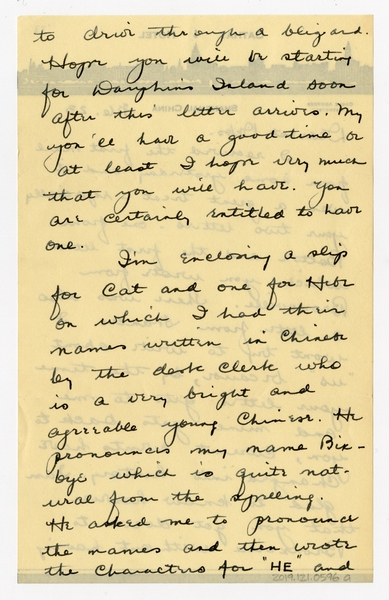 to drive through a blizzard.
Hope you will be starting
for Dauphins Island soon
after this letter arrives. My
you'll have a good time or
at least I hope very much
that you will have. You
are certainly entitled to have
one.
I'm enclosing a slip
for Cat and one for Hebe
on which I had their
names written in Chinese
by the desk clerk who
is a very bright and
agreeable young Chinese. He
pronounces my name Bix-
bye which is quite nat-
ural from the spelling.
He asked me to pronounce
the names and then wrote
the characters for "HE" and
2019.121.0596 a